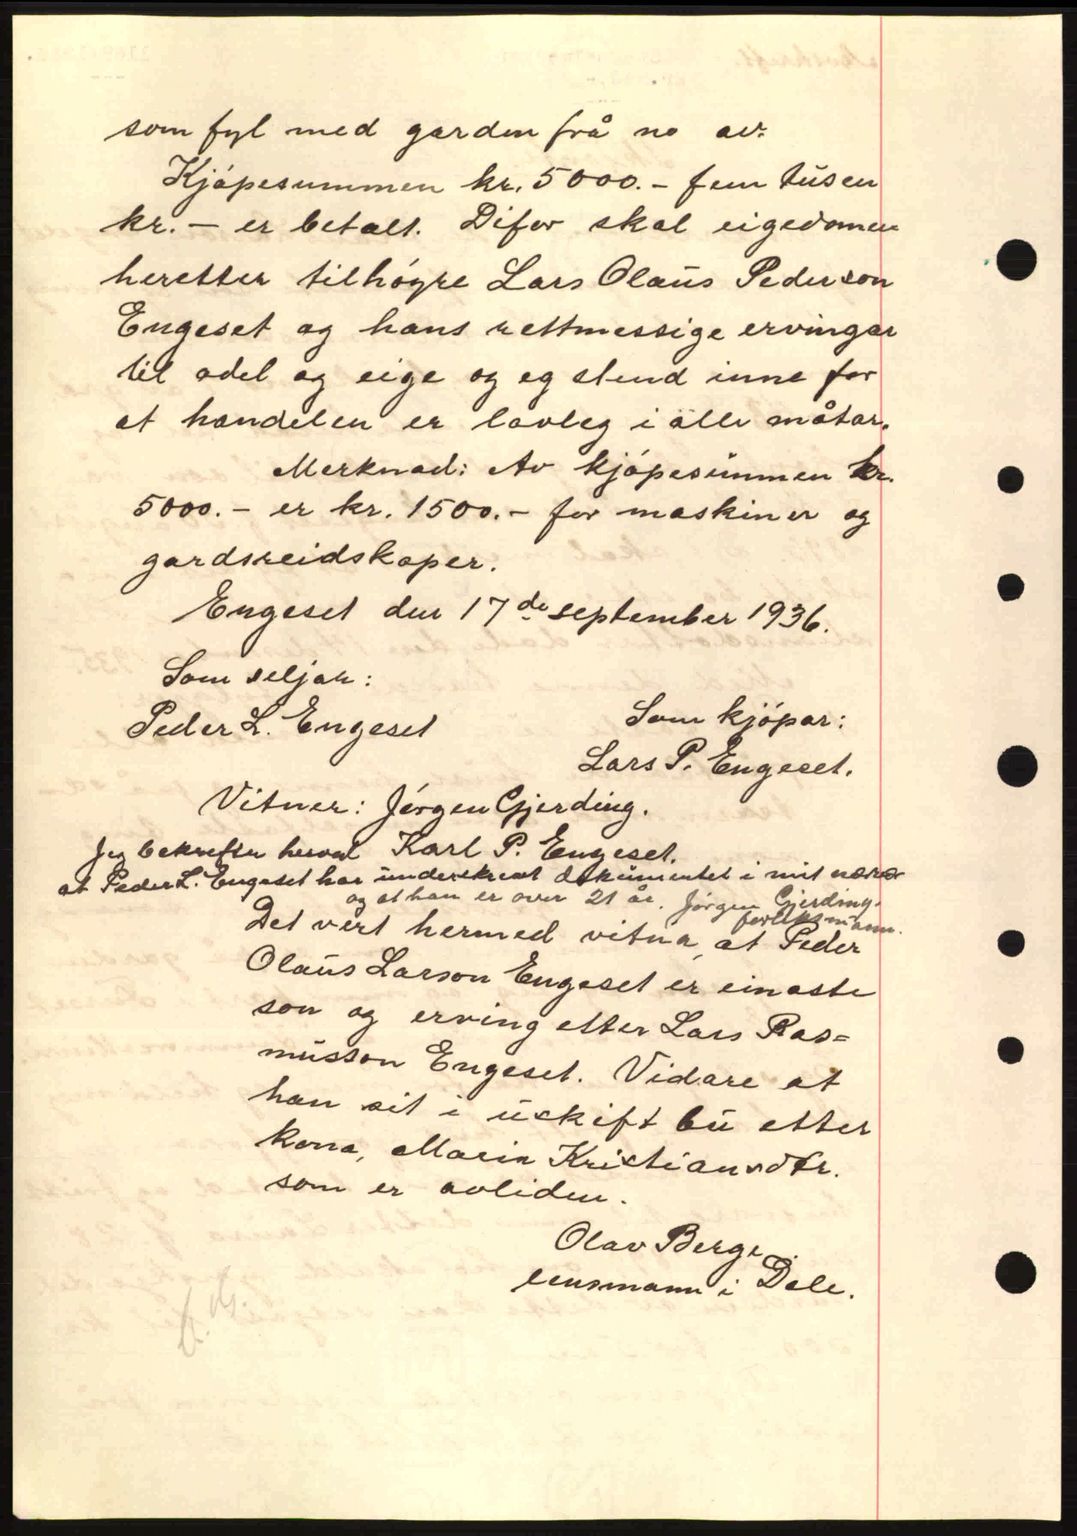 som fyl med garden frå no av.
Kjópesummen kr. 5000.- fem tusen
kr. - er betalt. Difor skal eigedomen
heretter tilhóyre Lars Olaus Pederson
Engeset og hans rettmessige ervingar
til odel og eige og eg stend inne for
at handelen er lovleg i alle måtar.
Merknad: Av kjópesummen kr.
5000.- er kr. 1500.- for maskiner og
gardsreidskaper.
Engeset den 17de september 1936.
Som seljar:
Peder L. Engeset
Som kjópar:
Lars P. Engeset.
Vitner: Jórgen Gjerding.
Karl P. Engeset.
Jeg bekrefter herved
at Peder L. Engeset har underskrevet dokumentet i mit nærvær
og at han er over 21 år. Jórgen Gjerding.
forliksmann.
Det vert hermed vitna, at Peder
Olaus Larson Engeset er einaste
son og erving etter Lars Ras=
musson Engeset. Vidare at
han sit i uskift bu etter
kona, Marin Kristiansdtr.
som er avliden.
Olav Berge
lensmann i Dale.